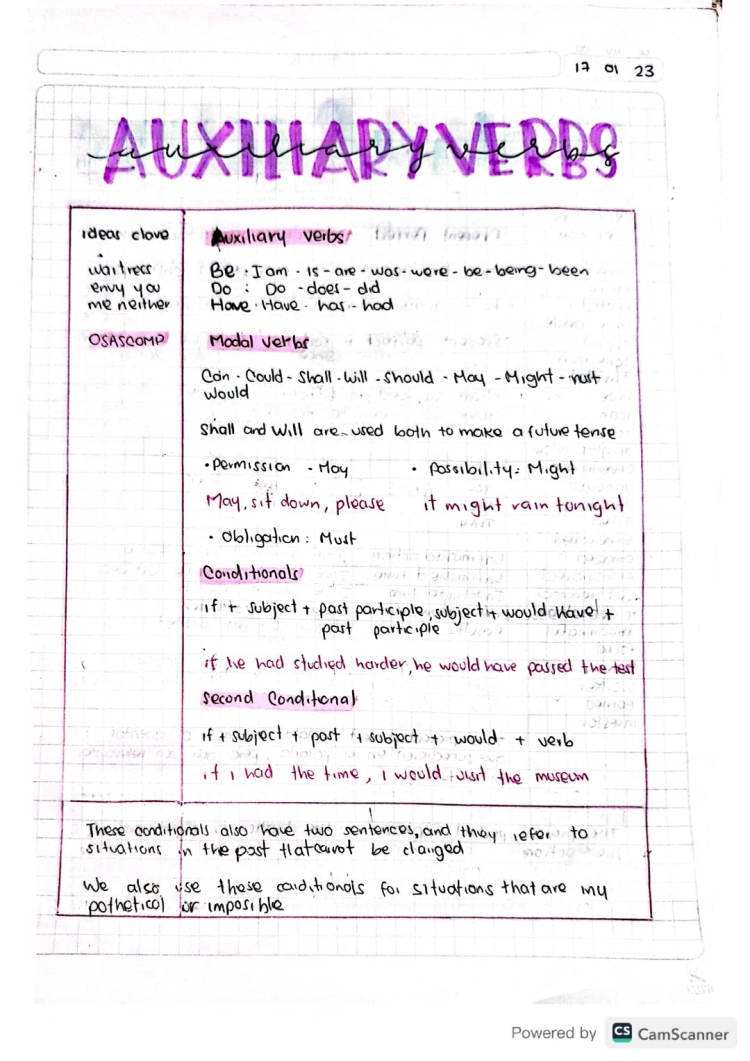 17 01 23
AUXILIARY VERBS
auxiliary verbs
ideas clave
waitress
envy you
me neither
OSASCOMP
Auxiliary verbs
Be : I am - is - are - was - were - be - being - been
Do : Do - does - did
Have · Have · has - had
Modal verbs
Can - Could - Shall - Will - Should - May - Might - must
would
Shall and Will are used both to make a future tense
• Permission - May • Possibility: Might
May, sit down, please it might rain tonight
• Obligation: Must
Conditionals
if + subject + past participle, subject + would have +
past participle
if he had studied harder, he would have passed the test
Second Conditional
if + subject + past + subject + would + verb
if I had the time, I would visit the museum
These conditionals also have two sentences, and they refer to
situations in the past that cannot be changed
We also use these conditionals for situations that are my
pothetical or imposible
Powered by CS CamScanner